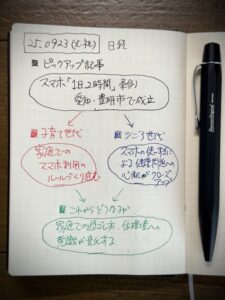 25.0923(火・祝) 日経
ピックアップ記事
スマホ「1日2時間」条例
愛知・豊明市で成立
子育て世代
家庭での
スマホ利用の
ルールづくり進む
シニア世代
スマホの使いすぎに
よる健康問題への
心配がクローズ
アップ
これからどうなるか
家庭での過ごし方、
意識が変化する